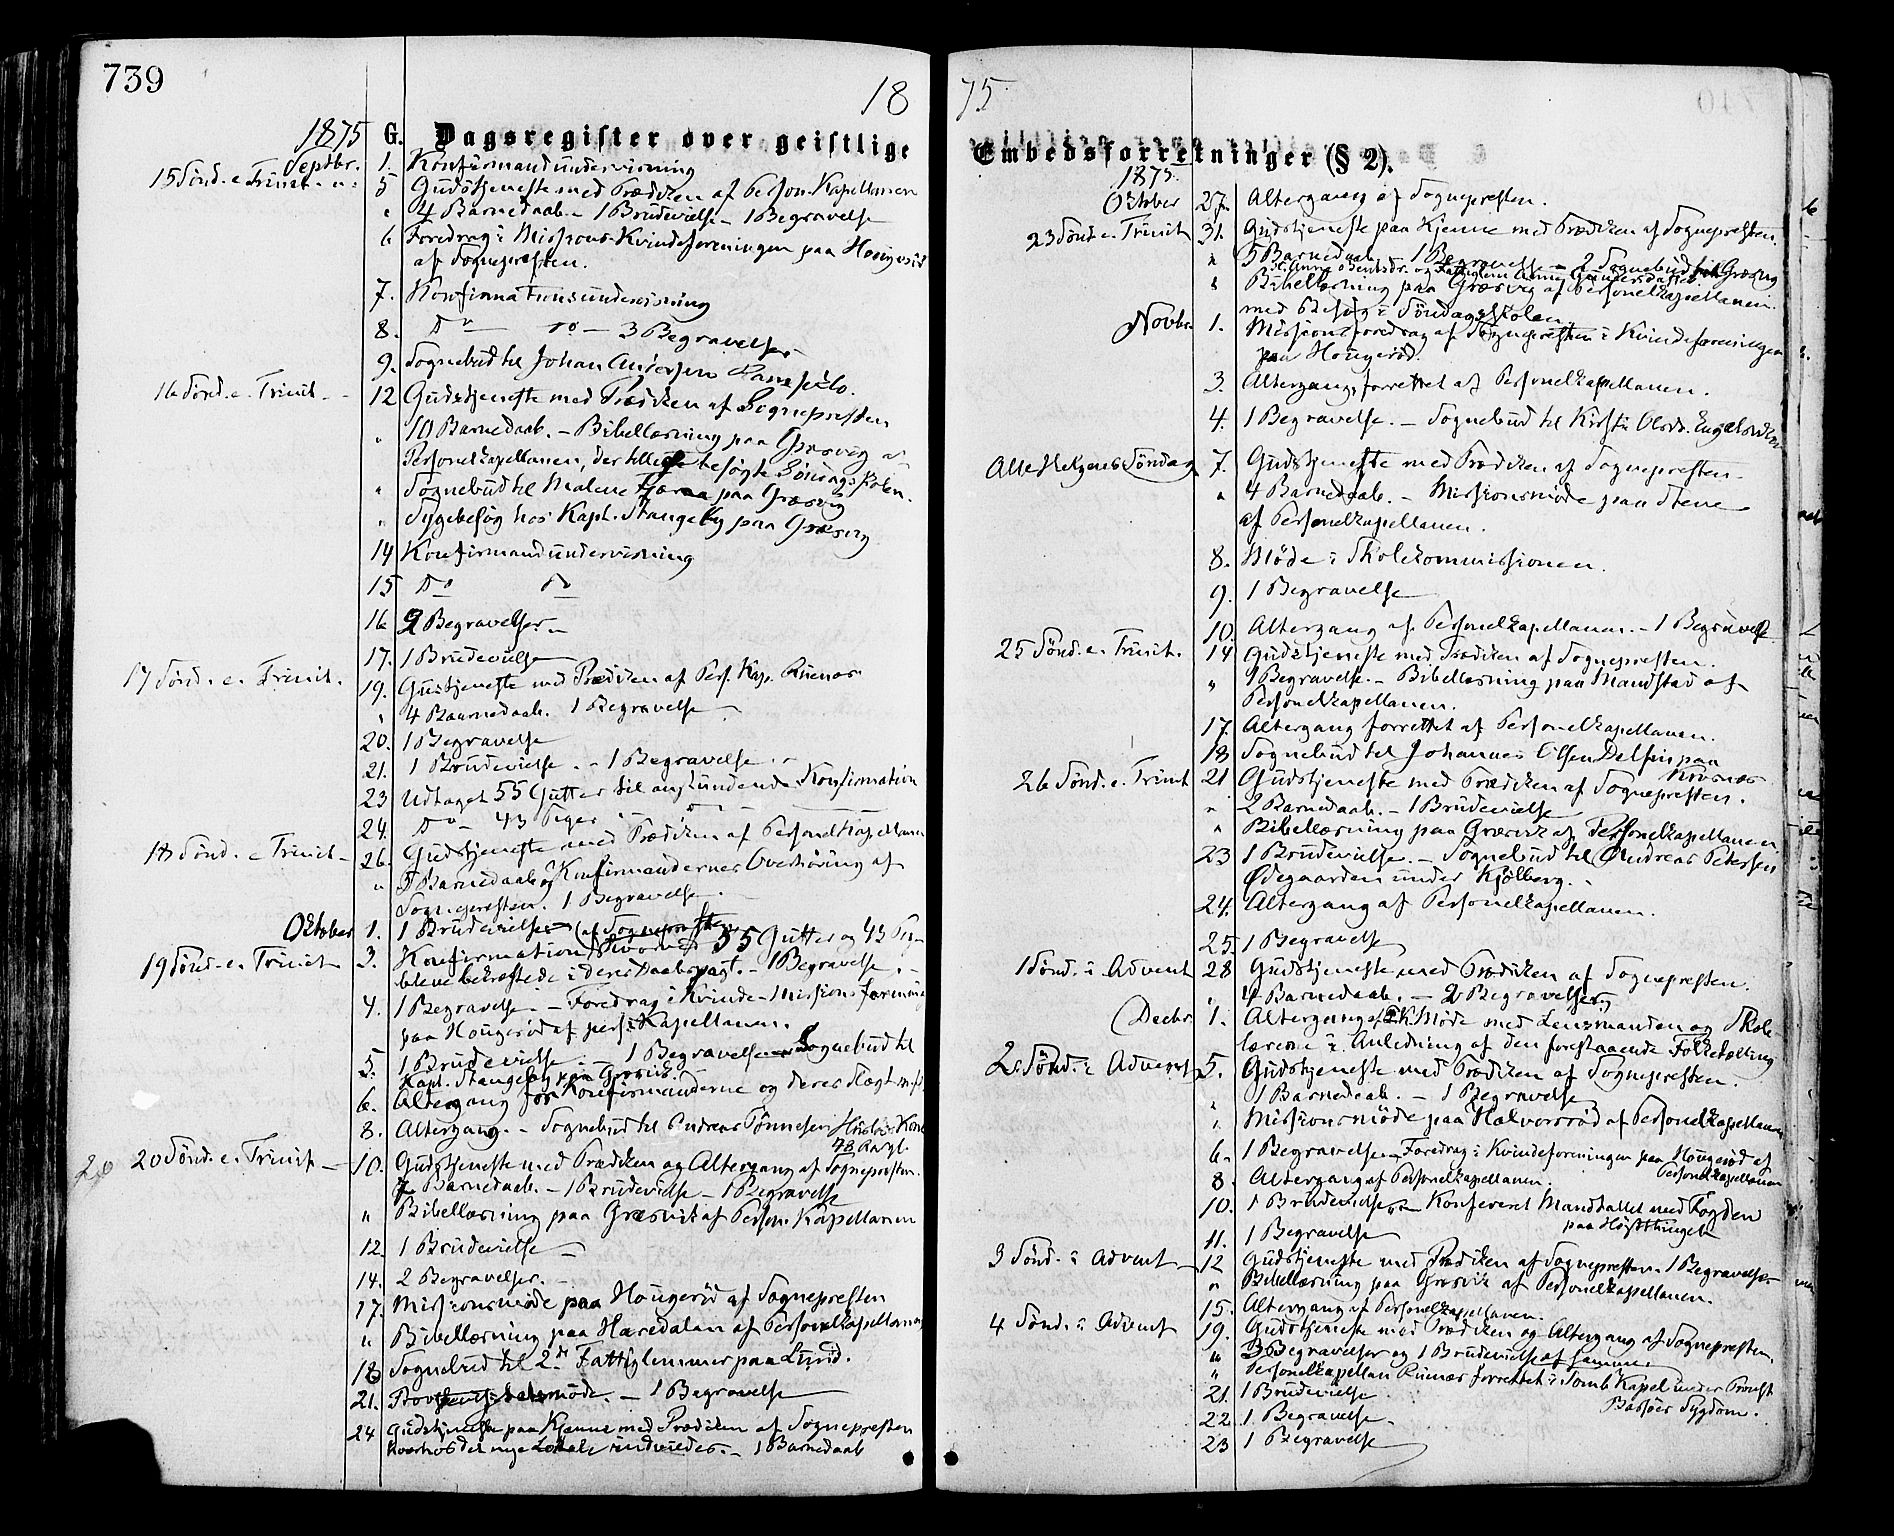 739
18
1875 G. Dagsregister over geistlige
Septbr. 1. Konfirmandundervisning
15 Sönd. e. Trinit. 5 Gudstjeneste med Prædiken af Person. Kapellanen
" 4 Barnedaab. – 1 Brudevielse – 1 Begravelse
6 Foredrag i Missions-Kvindeforeningen paa Hougeröd
af Sognepresten.
7. Konfirmationsundervisning
8. Do – Do – 3 Begravelser
9. Sognebud til Johan Andersen
16 Sönd. e. Trinit. – 12 Gudstjeneste med Prædiken af Sognepresten
" 10 Barnedaab. – Bibellæsning paa Græsvig af
Personelkapellanen, der tillige besögte Söndagsskolen.
" Sognebud til Malene paa Græsvig
" Sygebesög hos Kapt. Stangeby paa Græsvig
14 Konfirmandundervisning
15 Do Do
16 2 Begravelser –
17. 1 Brudevielse
17 Sönd. e. Trinit. 19. Gudstjeneste med Prædiken af Pers. Kap. Ruenæs
" 4 Baarnedaab. 1 Begravelse –
20. 1 Begravelse
21. 1 Brudevielse. – 1 Begravelse. –
23 Udtaget 55 Gutter til anstundende Konfirmation
24. Do – 43 Piger
18 Sönd. e. Trinit – 26. Gudstjeneste med Prædiken af Personelkapellanen
" 5 Barnedaab og Konfirmandernes Overhöring af
Sognepresten. 1 Begravelse.
Oktober 1. 1 Brudevielse (af Sognepresten
19 Sönd. e. Trinit – 3. Konfirmation, hvorved 55 Gutter og 43 Pig-
bleve bekræftede i deres Daabspagt. – 1 Begravelse. –
4. 1 Begravelse. – Foredrag i Kvinde-Missionsforening
paa Hougeröd af pers. Kapellanen.
5. 1 Brudevielse. – 1 Begravelse – Sognebud til
Kapt. Stangeby paa Græsvik.
6. Altergang for Konfirmanderne og deres Slægtn.
8. Altergang. – Sognebud til Andreas Tönnesen
78 Aar gl.
20 20 Sönd. e. Trinit – 10. Gudstjeneste med Prædiken og Altergang af Sognepresten.
7 Barnedaab. – 1 Brudevielse – 1 Begravelse
" Bibellæsning paa Græsvik af Person. Kapellanen
12. 1 Brudevielse –
14. 2 Begravelser. –
17. Missionsmöde paa Hougeröd af Sognepresten
" Bibellæsning paa Haredalen af Personelkapellanen
18 Sognebud til 2de Fattiglemmer paa Lund.
21. – 1 Begravelse
24 Gudstjeneste paa Kjenne med Prædiken af Sognepresten
hvorhos det nye Lokale indviedes. – 1 Barnedaab
75
Embedsforretninger (§ 2).
1875.
Oktober 27. Altergang af Sognepresten.
23 Sönd. e. Trinit 31. Gudstjeneste paa Kjenne med Prædiken af Sognepresten.
" 5 Barnedaab 1 Begravelse – 2 Sognebud til Græsvig
" Bibellæsning paa Græsvig af Personelkapellanen
med Besög i Söndagsskolen.
Novbr. 1. Missionsforedrag af Sognepresten i Kvindeforeningen
paa Hougeröd.
3. Altergang forrettet af Personelkapellanen.
4. 1 Begravelse. – Sognebud til Kirsti Olsdr.
Alle Helgens Söndag 7. Gudstjeneste med Prædiken af Sognepresten.
" 4 Barnedaab. – Missionsmöde paa Stene
af Personelkapellanen.
8. Möde i Skolekommissionen.
9. 1 Begravelse
10. Altergang af Personelkapellanen. – 1 Begravelse
25 Sönd. e. Trinit. 14 Gudstjeneste med Prædiken af Sognepresten.
" 1 Begravelse. – Bibellæsning paa Mandstad af
Personelkapellanen.
17. Altergang forrettet af Personelkapellanen.
18 Sognebud til Johannes Olsen Delfin paa
26 Sönd. e. Trinit 21 Gudstjeneste med Prædiken af Sognepresten.
" 2 Barnedaab. – 1 Brudevielse
" Bibellæsning paa Græsvik af Personelkapellanen
23 1 Brudevielse. – Sognebud til Andreas Petersen
Ødegaarden under Kjölberg. –
24. Altergang af Personelkapellanen.
25. 1 Begravelse
1 Sönd. i Advent 28 Gudstjeneste med Prædiken af Sognepresten.
" 4 Barnedaab. – 2 Begravelser
Decbr. 1. Altergang af P. K. Möde med Lensmanden og Skole-
lærerne i Anledning af den forestaaende Folketælling
2 Sönd. i Advent 5. Gudstjeneste med Prædiken af Sognepresten.
" 1 Barnedaab. – 1 Begravelse
" Missionsmöde paa Halvorsröd af Personelkapellanen
6. 1 Begravelse – Foredrag i Kvindeforeningen paa Hougeröd af
Personelkapellanen
8. Altergang af Personelkapellanen.
10. 1 Brudevielse – Konfereret Mandtallet med Fogden
paa Hösttinget
11. 1 Begravelse
3 Sönd. i Advent – 12 Gudstjeneste med Prædiken af Sognepresten. 1 Begravelse
" Bibellæsning paa Græsvik af Personelkapellanen.
15. Altergang af Personelkapellanen.
4 Sönd. i Advent 19. Gudstjeneste med Prædiken og Altergang af Sognepresten.
" 3 Begravelser og 1 Brudevielse af samme.
" Personelkapellan Ruenæs forrettet i Tomb Kapel under Provst
Bassöes Sygdom.
21. 1 Brudevielse
22. 1 Begravelse.
23 1 Begravelse